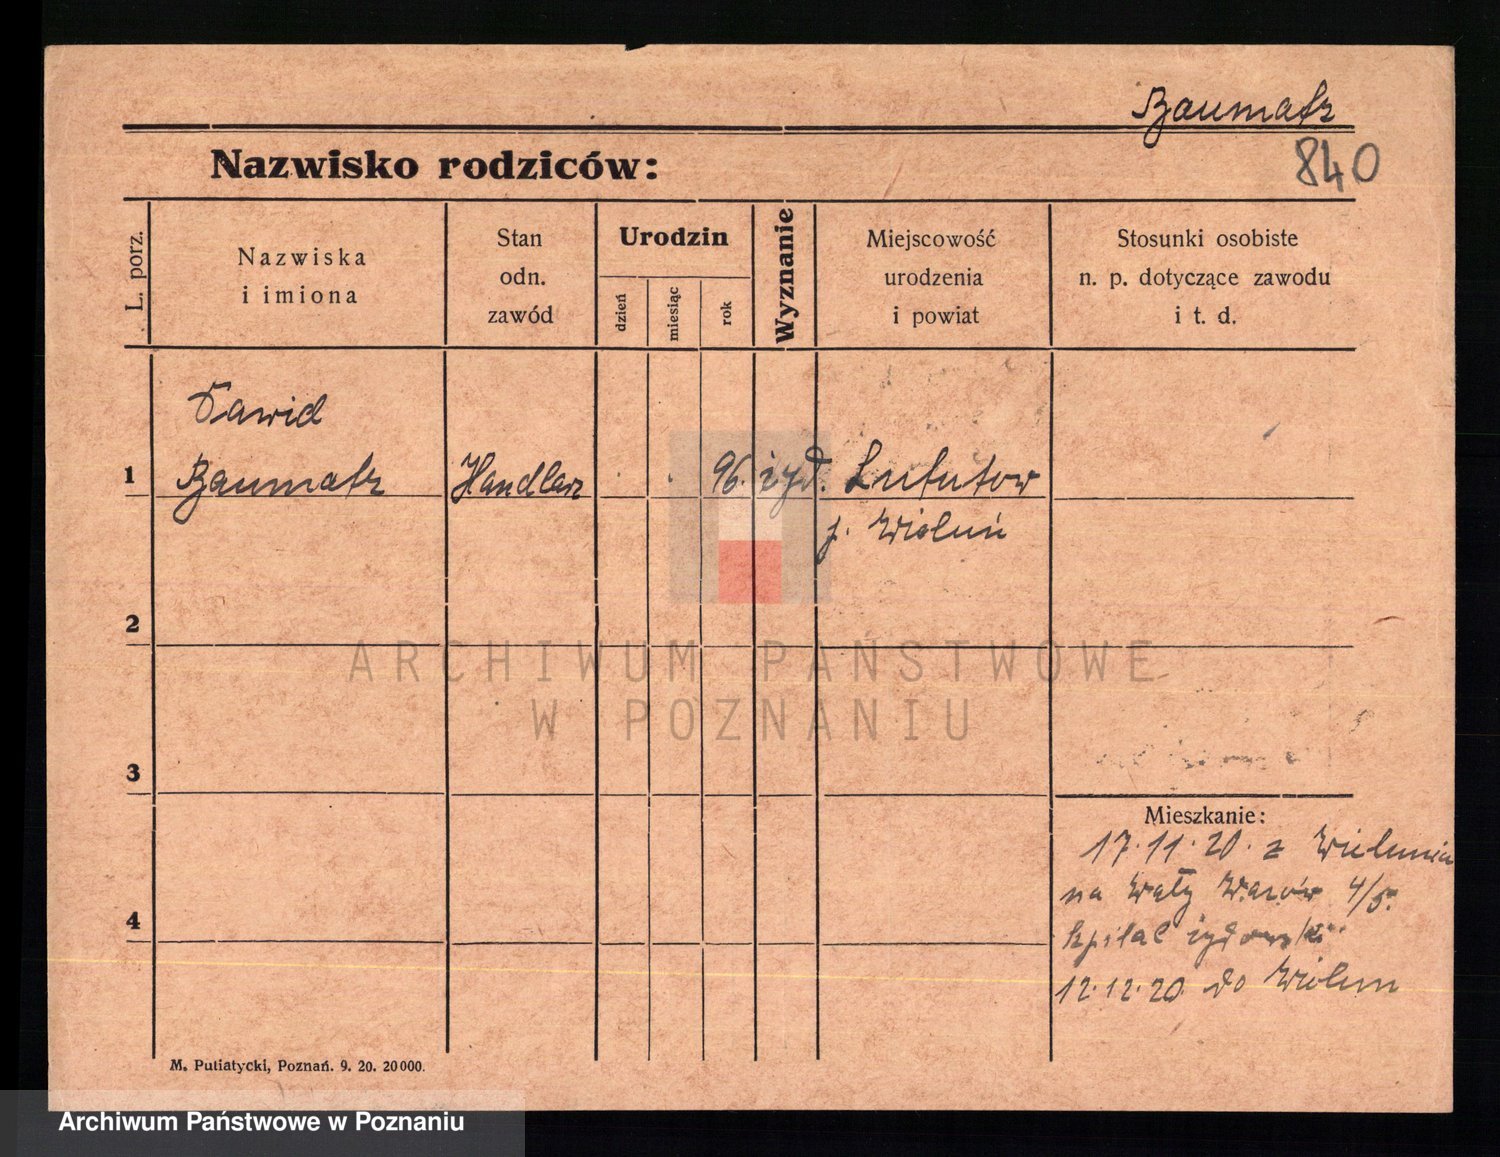 Baumatz
840
Nazwisko rodziców:
L. porz.
Nazwiska
i imiona
Stan
odn.
zawód
Urodzin
dzień
miesiąc
rok
Wyznanie
Miejscowość
urodzenia
i powiat
Stosunki osobiste
n. p. dotyczące zawodu
i t. d.
Dawid
1 Baumatz Handlarz 96. żyd. Lututow
p. Wieluń
2
ARCHIWUM PAŃSTWOWE
W POZNANIU
3
Mieszkanie:
17.11.20. z Wielunia
na Wały Wazów 4/5.
4
szpital żydowski
12.12.20. do Wielun
M. Putiatycki, Poznań. 9. 20. 20000.
Archiwum Państwowe w Poznaniu